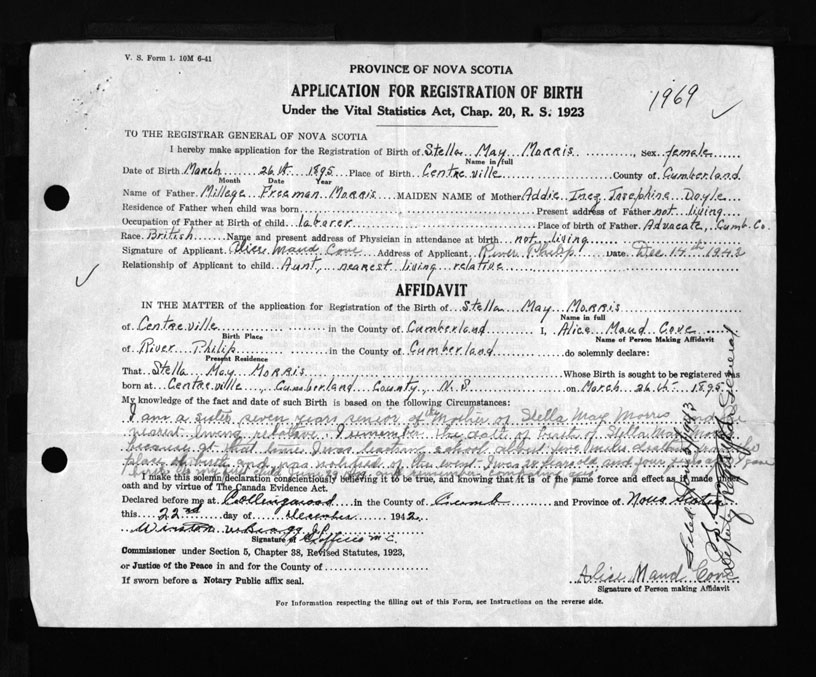 V. S. Form 1. 10M 6-41
PROVINCE OF NOVA SCOTIA
APPLICATION FOR REGISTRATION OF BIRTH
Under the Vital Statistics Act, Chap. 20, R. S. 1923
1969
TO THE REGISTRAR GENERAL OF NOVA SCOTIA
I hereby make application for the Registration of Birth of Stella May Morris, Sex female
Name in full
Date of Birth March 26th 1895 Place of Birth Centreville County of Cumberland
Month Date Year
Name of Father Millege Freeman Morris MAIDEN NAME of Mother Addie Inez Josephine Doyle
Residence of Father when child was born Present address of Father not living
Occupation of Father at Birth of child laborer Place of birth of Father Advocate, Cumb. Co.
Race British Name and present address of Physician in attendance at birth not living
Signature of Applicant Alice Maud Cove Address of Applicant River Philip Date Dec 14th 1942
Relationship of Applicant to child Aunt, nearest living relative
AFFIDAVIT
IN THE MATTER of the application for Registration of the Birth of Stella May Morris
Name in full
of Centreville in the County of Cumberland I, Alice Maud Cove
Birth Place Name of Person Making Affidavit
of River Philip in the County of Cumberland do solemnly declare:
Present Residence
That Stella May Morris Whose Birth is sought to be registered was
born at Centreville, Cumberland County, N.S. on March 26th 1895
My knowledge of the fact and date of such Birth is based on the following Circumstances:
I am a sister seven years senior of the Mother of Stella May Morris and
nearest living relative. I remember the date of birth of Stella May
because at that time I was teaching school about two miles distant from
place of birth and was notified of the event. I was 28 years old and four
I make this solemn declaration conscientiously believing it to be true, and knowing that it is of the same force and effect as if made under
oath and by virtue of The Canada Evidence Act.
Declared before me at Collingwood in the County of Cumb and Province of Nova Scotia
this 22nd day of December 1942
Signature of
Commissioner under Section 5, Chapter 38, Revised Statutes, 1923,
or Justice of the Peace in and for the County of
If sworn before a Notary Public affix seal.
Alice Maud Cove
Signature of Person making Affidavit
Deputy Registrar General
For Information respecting the filling out of this Form, see Instructions on the reverse side.